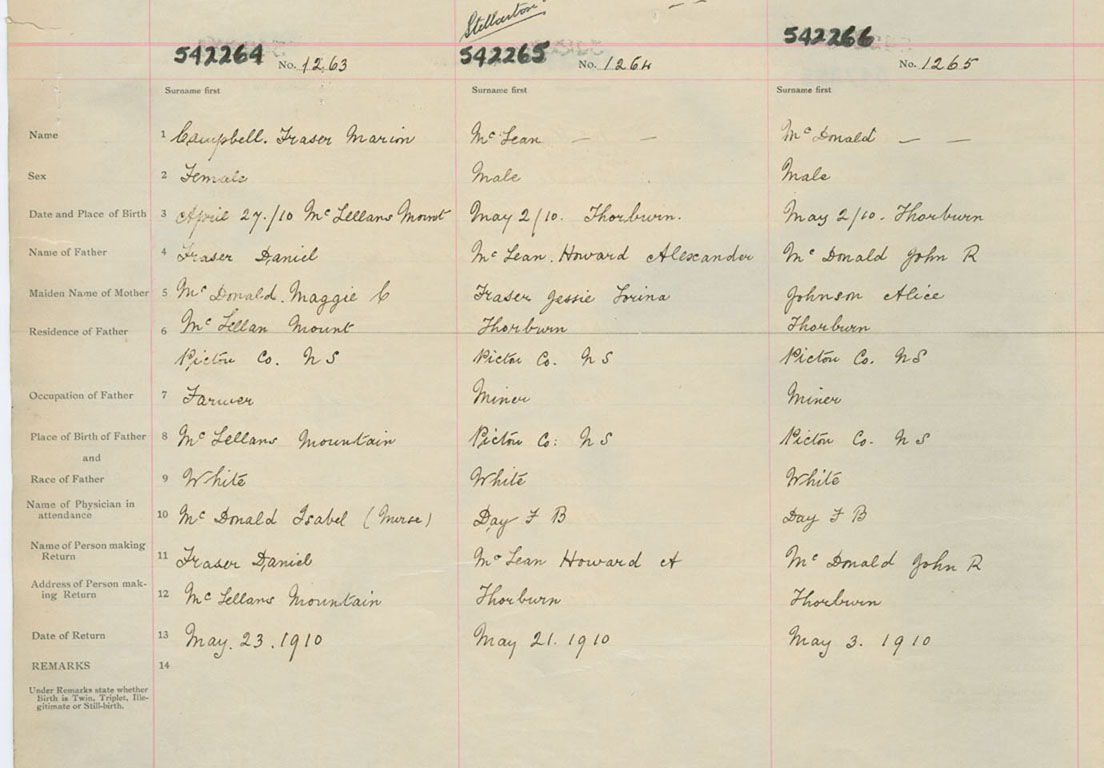 Stellarton
542264 No. 1263 542265 No. 1264 542266 No. 1265
Surname first Surname first Surname first
Name 1 Campbell. Fraser Marion Mc Lean — — Mc Donald — —
Sex 2 Female Male Male
Date and Place of Birth 3 April 27./10 Mc Lellans Mount May 2/10. Thorburn. May 2/10. Thorburn
Name of Father 4 Fraser Daniel Mc Lean. Howard Alexander Mc Donald John R
Maiden Name of Mother 5 Mc Donald. Maggie C Fraser Jessie Lorina Johnson Alice
Residence of Father 6 Mc Lellan Mount Thorburn Thorburn
Pictou Co. N S Pictou Co. N S Pictou Co. N S
Occupation of Father 7 Farmer Miner Miner
Place of Birth of Father 8 Mc Lellans Mountain Pictou Co: N S Pictou Co. N S
and
Race of Father 9 White White White
Name of Physician in
attendance 10 Mc Donald Isabel (Nurse) Day F B Day F B
Name of Person making
Return 11 Fraser Daniel Mc Lean Howard A Mc Donald John R
Address of Person mak-
ing Return 12 Mc Lellans Mountain Thorburn Thorburn
Date of Return 13 May. 23. 1910 May 21. 1910 May 3. 1910
REMARKS 14
Under Remarks state whether
Birth is Twin, Triplet, Ille-
gitimate or Still-birth.